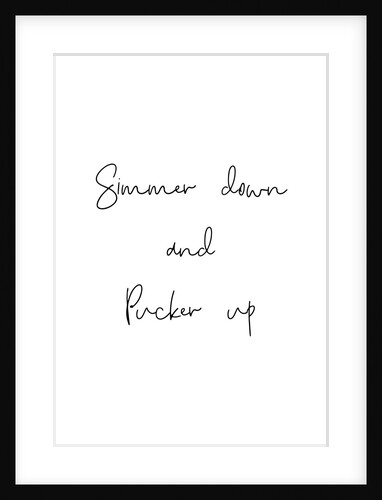 Simmer down
and
Pucker up